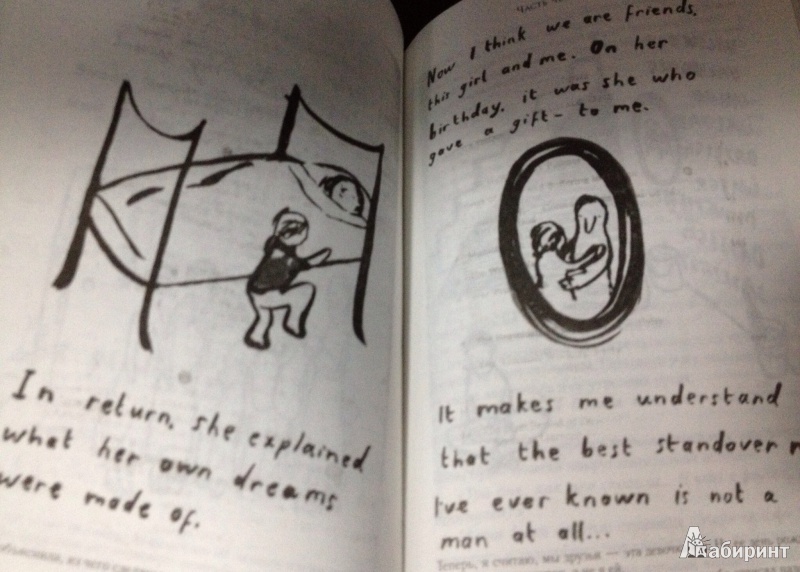 In return, she explained
what her own dreams
were made of.
Now I think we are friends,
this girl and me. On her
birthday, it was she who
gave a gift – to me.
It makes me understand
that the best standover
I've ever known is not a
man at all...
Теперь, я считаю, мы друзья — эта
Лабиринт